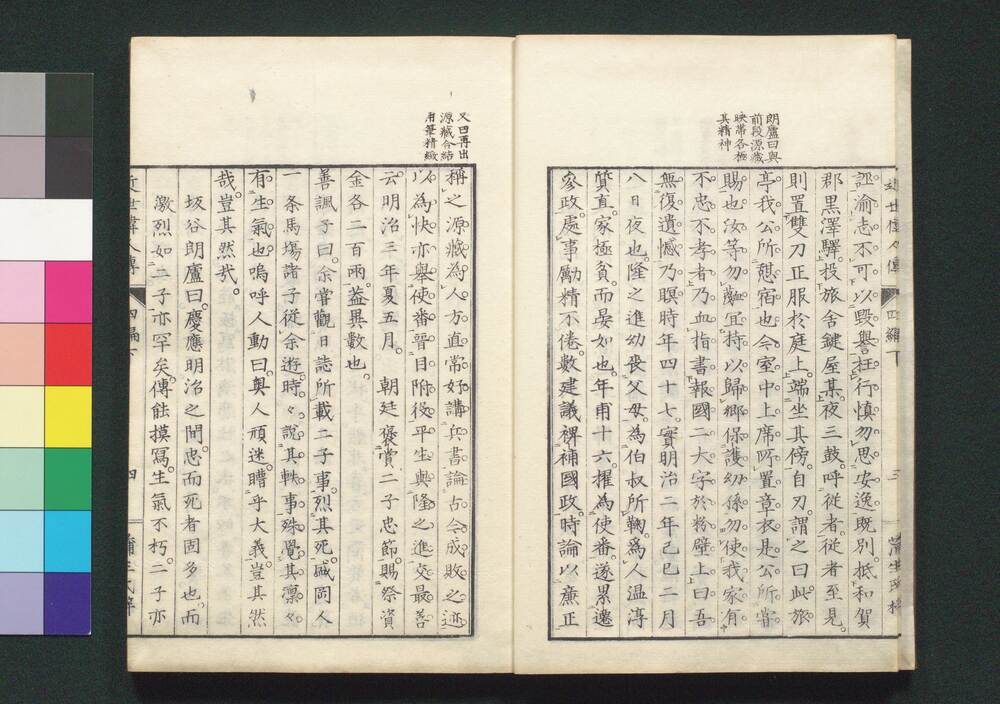 朗廬曰與
前段源藏
映帶各極
其精神
詬渝志不可以毀譽枉行慎勿思安逸既別抵和賀
郡黒澤驛投旅舎鍵屋某夜三鼓呼從者從者至見
則置雙刀正服於庭上端坐其傍自刃謂之曰此旅
亭我公所憩宿也今室中上席所置章衣是公所甞
賜也汝等勿齔宜持以歸郷保護幼孫勿使我家有
不忠不孝者乃血指書報國二大字於粉壁上曰吾
無復遺憾乃瞑時年四十七實明治二年己巳二月
八日夜也隆之進幼喪父母為伯叔所鞠為人温淳
質直家極貧而晏如也年甫十六擢為使番遂累遷
參政處事勵精不倦數建議裨補國政時論以廉正
近世偉人傳
四編下
三
蒲生氏梓
又曰再出
源藏合結
用筆精緻
稱之源藏為人方直常好講兵書論古今成敗之迹
以為快亦舉使番晉目附役平生與隆之進交最善
云明治三年夏五月 朝廷褒賞二子忠節賜祭資
金各二百兩葢異數也
善諷子曰余甞觀日誌所載二子事烈其死感同人
一条馬塲諸子從余遊時々說其軼事殊覺其凛々
有生氣也嗚呼人動曰奥人頑迷瞢乎大義豈其然
哉豈其然哉
坂谷朗廬曰慶應明治之間忠而死者固多也而
激烈如二子亦罕矣傳能摸冩生氣不朽二子亦
近世偉人傳
四編下
四
蒲生氏梓